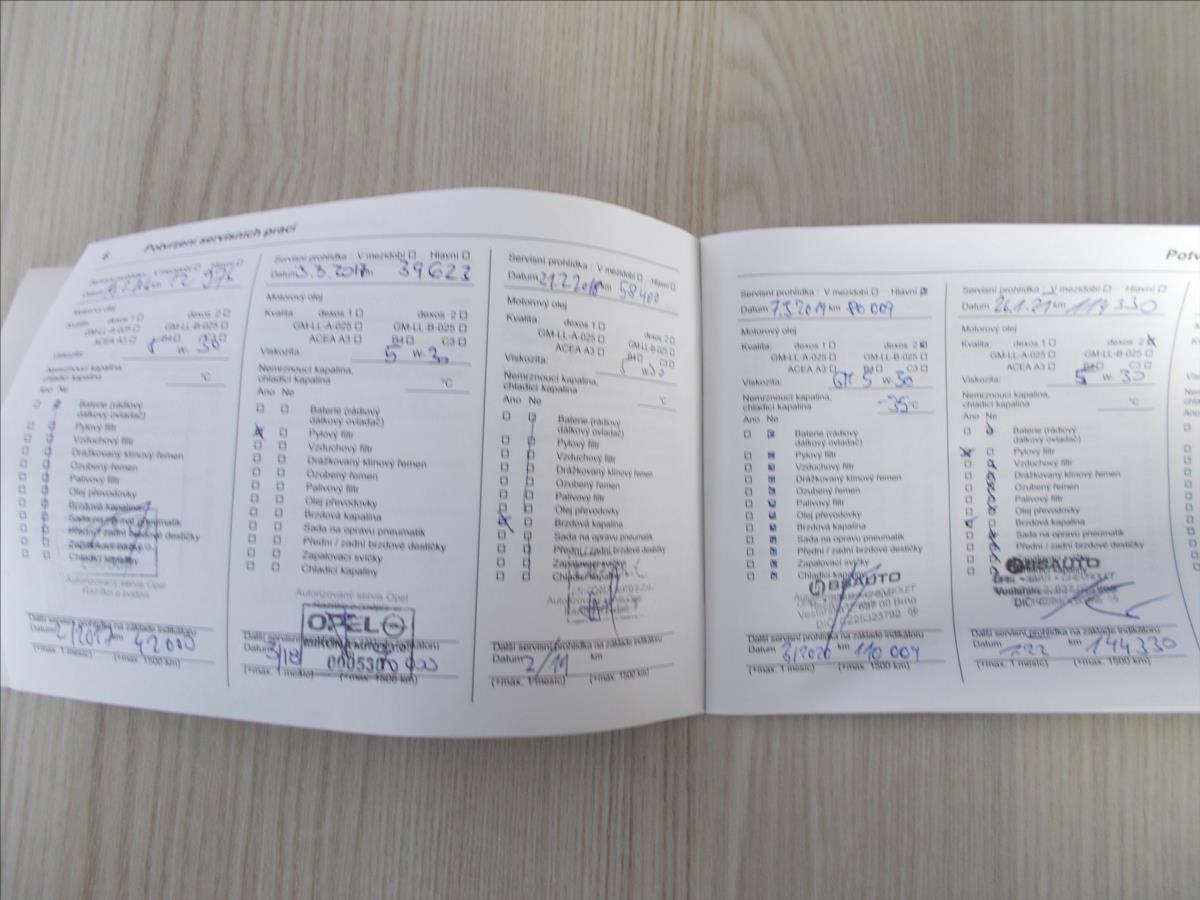 6 Potvrzení servisních prací
Servisní prohlídka : V mezidobí ☐ Hlavní ☐
Datum km 12 972
Motorový olej
Kvalita: dexos 1 ☐ dexos 2 ☐
GM-LL-A-025 ☐ GM-LL-B-025 ☐
ACEA A3 ☐ B4 ☐ C3 ☐
Viskozita: 5 W- 30
Nemrznoucí kapalina,
chladicí kapalina °C
Ano Ne
Baterie (rádiový
dálkový ovladač)
Pylový filtr
Vzduchový filtr
Drážkovaný klínový řemen
Ozubený řemen
Palivový filtr
Olej převodovky
Brzdová kapalina
Sada na opravu pneumatik
Přední / zadní brzdové destičky
Zapalovací svíčky
Chladicí kapaliny
Autorizovaný servis Opel
Razítko a podpis
Další servisní prohlídka na základě indikátoru
Datum 2/2017 km 42000
(+max. 1 měsíc) (+max. 1500 km)
Servisní prohlídka : V mezidobí ☐ Hlavní ☐
Datum 3.3.2017 km 39623
Motorový olej
Kvalita: dexos 1 ☐ dexos 2 ☐
GM-LL-A-025 ☐ GM-LL-B-025 ☐
ACEA A3 ☐ B4 ☐ C3 ☐
Viskozita: 5 W- 30
Nemrznoucí kapalina,
chladicí kapalina °C
Ano Ne
Baterie (rádiový
dálkový ovladač)
Pylový filtr
Vzduchový filtr
Drážkovaný klínový řemen
Ozubený řemen
Palivový filtr
Olej převodovky
Brzdová kapalina
Sada na opravu pneumatik
Přední / zadní brzdové destičky
Zapalovací svíčky
Chladicí kapaliny
Autorizovaný servis Opel
Razítko a podpis
OPEL
Datum 3/18
(+max. 1 měsíc) (+max. 1500 km)
Servisní prohlídka : V mezidobí ☐ Hlavní ☐
Datum 21.2.2018 km 58400
Motorový olej
Kvalita: dexos 1 ☐ dexos 2 ☐
GM-LL-A-025 ☐ GM-LL-B-025 ☐
ACEA A3 ☐ B4 ☐ C3 ☐
Viskozita: 5 W 30
Nemrznoucí kapalina,
chladicí kapalina °C
Ano Ne
Baterie (rádiový
dálkový ovladač)
Pylový filtr
Vzduchový filtr
Drážkovaný klínový řemen
Ozubený řemen
Palivový filtr
Olej převodovky
Brzdová kapalina
Sada na opravu pneumatik
Přední / zadní brzdové destičky
Zapalovací svíčky
Další servisní prohlídka na základě indikátoru
Datum 2/19 km
(+max. 1 měsíc) (+max. 1500 km)
Servisní prohlídka : V mezidobí ☐ Hlavní ☒
Datum 7.3.2019 km 80 009
Motorový olej
Kvalita: dexos 1 ☐ dexos 2 ☒
GM-LL-A-025 ☐ GM-LL-B-025 ☐
ACEA A3 ☐ B4 ☐ C3 ☐
Viskozita: 5 W- 30
Nemrznoucí kapalina,
chladicí kapalina -35 °C
Ano Ne
Baterie (rádiový
dálkový ovladač)
Pylový filtr
Vzduchový filtr
Drážkovaný klínový řemen
Ozubený řemen
Palivový filtr
Olej převodovky
Brzdová kapalina
Sada na opravu pneumatik
Přední / zadní brzdové destičky
Zapalovací svíčky
Chladicí kapaliny
BSAUTO
Brno
Další servisní prohlídka na základě indikátoru
Datum 3/2020 km 110 009
(+max. 1 měsíc) (+max. 1500 km)
Potv
Servisní prohlídka : V mezidobí ☐ Hlavní ☐
Datum 26.1.21 km 114 330
Motorový olej
Kvalita: dexos 1 ☐ dexos 2 ☒
GM-LL-A-025 ☐ GM-LL-B-025 ☐
ACEA A3 ☐ B4 ☐ C3 ☐
Viskozita: 5 W- 30
Nemrznoucí kapalina,
chladicí kapalina °C
Ano Ne
Baterie (rádiový
dálkový ovladač)
Pylový filtr
Vzduchový filtr
Drážkovaný klínový řemen
Ozubený řemen
Palivový filtr
Olej převodovky
Brzdová kapalina
Sada na opravu pneumatik
Přední / zadní brzdové destičky
Zapalovací svíčky
BSAUTO
Další servisní prohlídka na základě indikátoru
Datum 1.22 km 144330
(+max. 1 měsíc) (+max. 1500 km)